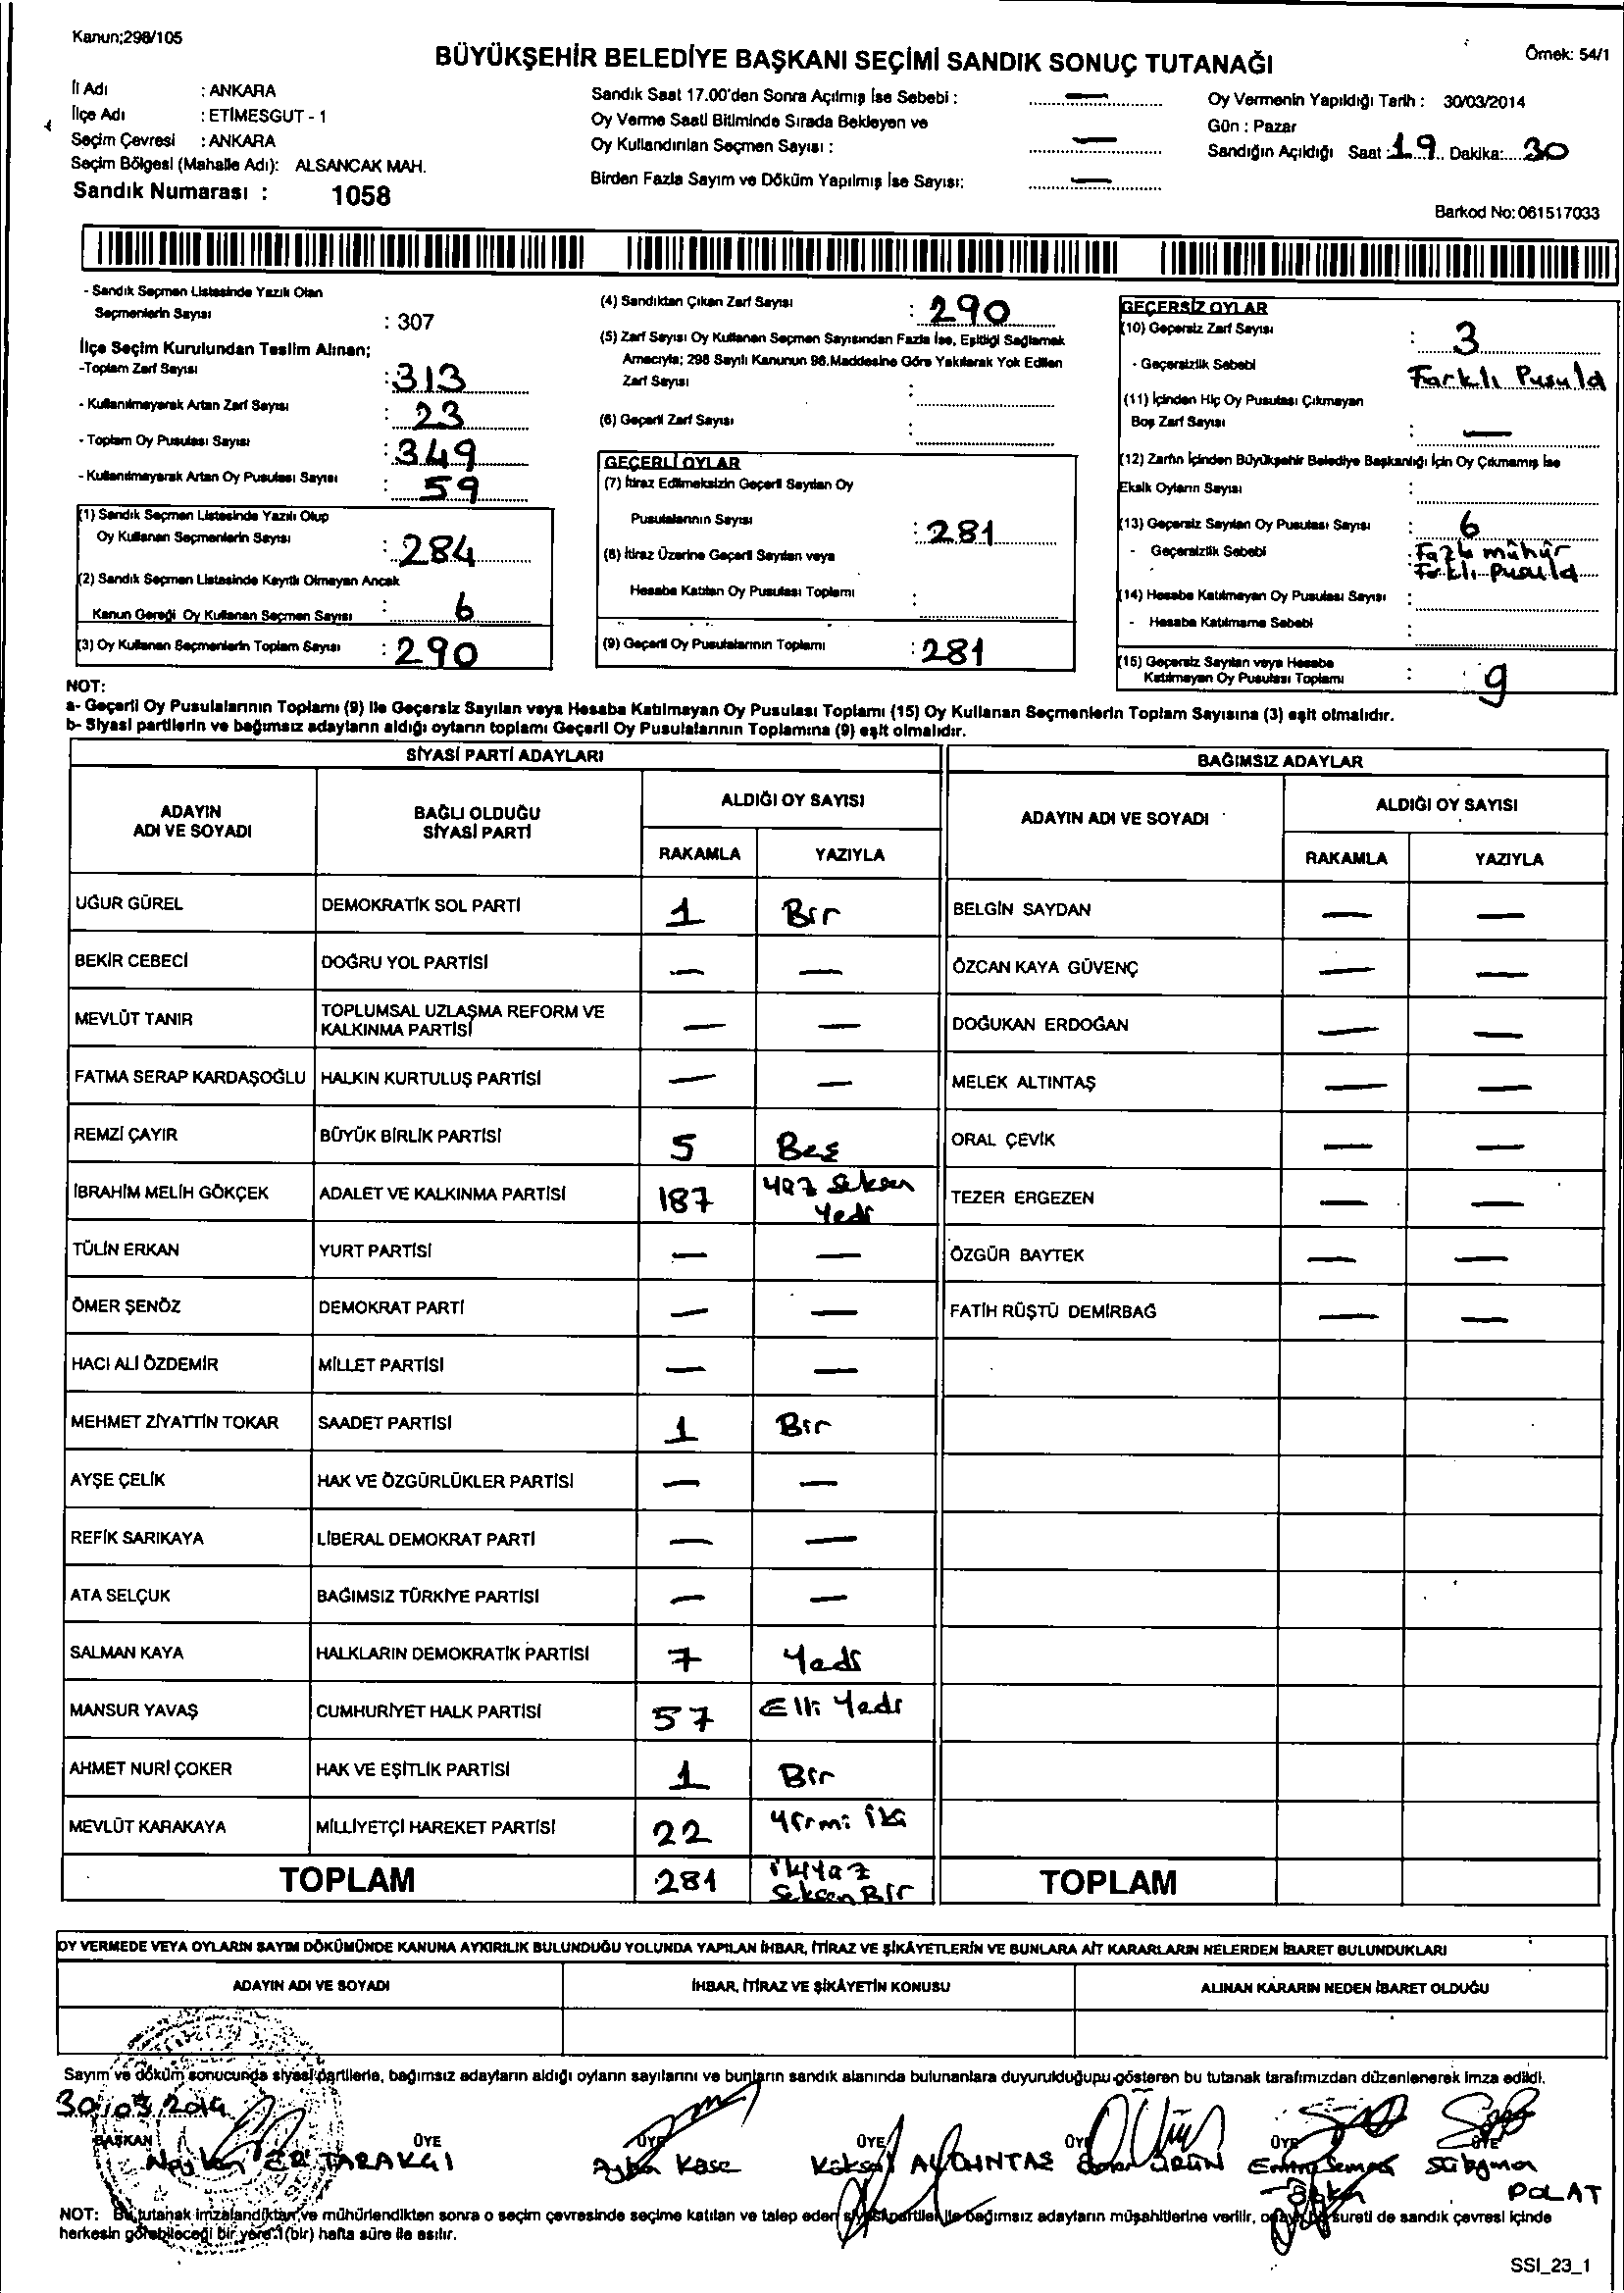 Kanun;298/105
BÜYÜKŞEHİR BELEDİYE BAŞKANI SEÇİMİ SANDIK SONUÇ TUTANAĞI
Örnek: 54/1
İl Adı : ANKARA
İlçe Adı : ETİMESGUT - 1
Seçim Çevresi : ANKARA
Seçim Bölgesi (Mahalle Adı): ALSANCAK MAH.
Sandık Numarası : 1058
Sandık Saat 17.00'den Sonra Açılmış İse Sebebi : —
Oy Verme Saati Bitiminde Sırada Bekleyen ve
Oy Kullandırılan Seçmen Sayısı : —
Birden Fazla Sayım ve Döküm Yapılmış İse Sayısı: —
Oy Vermenin Yapıldığı Tarih : 30/03/2014
Gün : Pazar
Sandığın Açıldığı Saat : 19 Dakika: 30
Barkod No: 061517033
- Sandık Seçmen Listesinde Yazılı Olan
Seçmenlerin Sayısı : 307
İlçe Seçim Kurulundan Teslim Alınan;
-Toplam Zarf Sayısı : 313
- Kullanılmayarak Artan Zarf Sayısı : 23
- Toplam Oy Pusulası Sayısı : 349
- Kullanılmayarak Artan Oy Pusulası Sayısı : 59
(1) Sandık Seçmen Listesinde Yazılı Olup
Oy Kullanan Seçmenlerin Sayısı : 284
(2) Sandık Seçmen Listesinde Kayıtlı Olmayan Ancak
Kanun Gereği Oy Kullanan Seçmen Sayısı : 6
(3) Oy Kullanan Seçmenlerin Toplam Sayısı : 290
(4) Sandıktan Çıkan Zarf Sayısı : 290
(5) Zarf Sayısı Oy Kullanan Seçmen Sayısından Fazla İse, Eşitliği Sağlamak
Amacıyla; 298 Sayılı Kanunun 98.Maddesine Göre Yakılarak Yok Edilen
Zarf Sayısı :
(6) Geçerli Zarf Sayısı :
GEÇERLİ OYLAR
(7) İtiraz Edilmeksizin Geçerli Sayılan Oy
Pusulalarının Sayısı : 281
(8) İtiraz Üzerine Geçerli Sayılan veya
Hesaba Katılan Oy Pusulası Toplamı :
(9) Geçerli Oy Pusulalarının Toplamı : 281
GEÇERSİZ OYLAR
(10) Geçersiz Zarf Sayısı : 3
- Geçersizlik Sebebi Farklı Pusula
(11) İçinden Hiç Oy Pusulası Çıkmayan
Boş Zarf Sayısı : —
(12) Zarfın İçinden Büyükşehir Belediye Başkanlığı İçin Oy Çıkmamış İse
Eksik Oyların Sayısı :
(13) Geçersiz Sayılan Oy Pusulası Sayısı : 6
- Geçersizlik Sebebi : Fazla mühür
Farklı Pusula
(14) Hesaba Katılmayan Oy Pusulası Sayısı :
- Hesaba Katılmama Sebebi :
(15) Geçersiz Sayılan veya Hesaba
Katılmayan Oy Pusulası Toplamı : 9
NOT:
a- Geçerli Oy Pusulalarının Toplamı (9) ile Geçersiz Sayılan veya Hesaba Katılmayan Oy Pusulası Toplamı (15) Oy Kullanan Seçmenlerin Toplam Sayısına (3) eşit olmalıdır.
b- Siyasi partilerin ve bağımsız adayların aldığı oyların toplamı Geçerli Oy Pusulalarının Toplamına (9) eşit olmalıdır.
SİYASİ PARTİ ADAYLARI
BAĞIMSIZ ADAYLAR
ADAYIN ADI VE SOYADI
BAĞLI OLDUĞU SİYASİ PARTİ
ALDIĞI OY SAYISI
RAKAMLA YAZIYLA
ADAYIN ADI VE SOYADI
ALDIĞI OY SAYISI
RAKAMLA YAZIYLA
UĞUR GÜREL DEMOKRATİK SOL PARTİ 1 Bir BELGİN SAYDAN — —
BEKİR CEBECİ DOĞRU YOL PARTİSİ — — ÖZCAN KAYA GÜVENÇ — —
MEVLÜT TANIR TOPLUMSAL UZLAŞMA REFORM VE KALKINMA PARTİSİ — — DOĞUKAN ERDOĞAN — —
FATMA SERAP KARDAŞOĞLU HALKIN KURTULUŞ PARTİSİ — — MELEK ALTINTAŞ — —
REMZİ ÇAYIR BÜYÜK BİRLİK PARTİSİ 5 Beş ORAL ÇEVİK — —
İBRAHİM MELİH GÖKÇEK ADALET VE KALKINMA PARTİSİ 187 Yüz Seksen Yedi TEZER ERGEZEN — —
TÜLİN ERKAN YURT PARTİSİ — — ÖZGÜR BAYTEK — —
ÖMER ŞENÖZ DEMOKRAT PARTİ — — FATİH RÜŞTÜ DEMİRBAĞ — —
HACI ALİ ÖZDEMİR MİLLET PARTİSİ — —
MEHMET ZİYATTİN TOKAR SAADET PARTİSİ 1 Bir
AYŞE ÇELİK HAK VE ÖZGÜRLÜKLER PARTİSİ — —
REFİK SARIKAYA LİBERAL DEMOKRAT PARTİ — —
ATA SELÇUK BAĞIMSIZ TÜRKİYE PARTİSİ — —
SALMAN KAYA HALKLARIN DEMOKRATİK PARTİSİ 7 Yedi
MANSUR YAVAŞ CUMHURİYET HALK PARTİSİ 57 Elli Yedi
AHMET NURİ ÇOKER HAK VE EŞİTLİK PARTİSİ 1 Bir
MEVLÜT KARAKAYA MİLLİYETÇİ HAREKET PARTİSİ 22 Yirmi iki
TOPLAM 281 ikiyüz Seksen Bir TOPLAM
OY VERMEDE VEYA OYLARIN SAYIM DÖKÜMÜNDE KANUNA AYKIRILIK BULUNDUĞU YOLUNDA YAPILAN İHBAR, İTİRAZ VE ŞİKÂYETLERİN VE BUNLARA AİT KARARLARIN NELERDEN İBARET BULUNDUKLARI
ADAYIN ADI VE SOYADI İHBAR, İTİRAZ VE ŞİKÂYETİN KONUSU ALINAN KARARIN NEDEN İBARET OLDUĞU
Sayım ve döküm sonucunda siyasi partilerle, bağımsız adayların aldığı oyların sayılarını ve bunların sandık alanında bulunanlara duyurulduğunu gösteren bu tutanak tarafımızdan düzenlenerek imza edildi.
30/03/2014
BAŞKAN ÜYE ÜYE ÜYE ÜYE ÜYE ÜYE
TARAKÇI Köse Köksal AYDINTAŞ Süleyman
POLAT
NOT: Bu tutanak imzalandıktan ve mühürlendikten sonra o seçim çevresinde seçime katılan ve talep eden siyasi partiler ile bağımsız adayların müşahitlerine verilir, onaylı bir sureti de sandık çevresi içinde
herkesin görebileceği bir yere 1 (bir) hafta süre ile asılır.
SSI_23_1